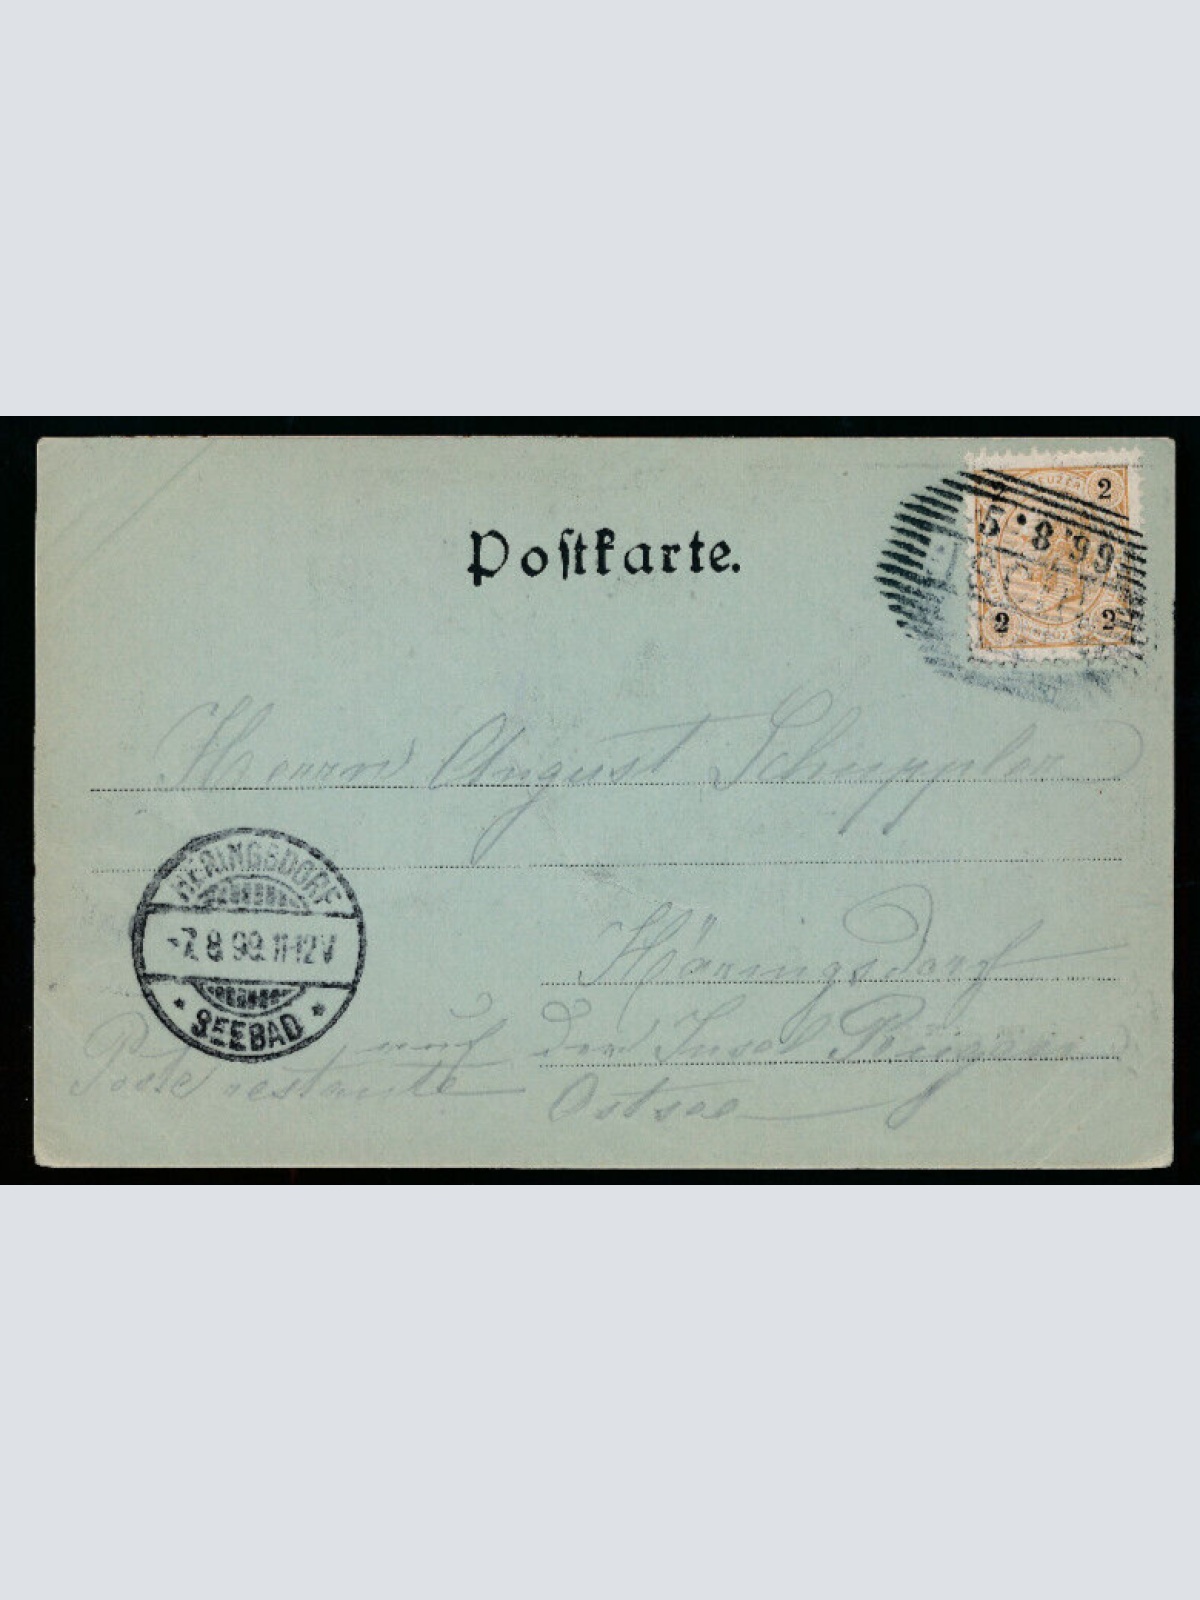 Postkarte.
KREUZER
2 2
5·8 99
2 2
Herrn August Schuppler
HERINGSDORF
-7.8.99.11-12V
* SEEBAD *
Häringsdorf
auf der Insel
Poste restante Ostsee